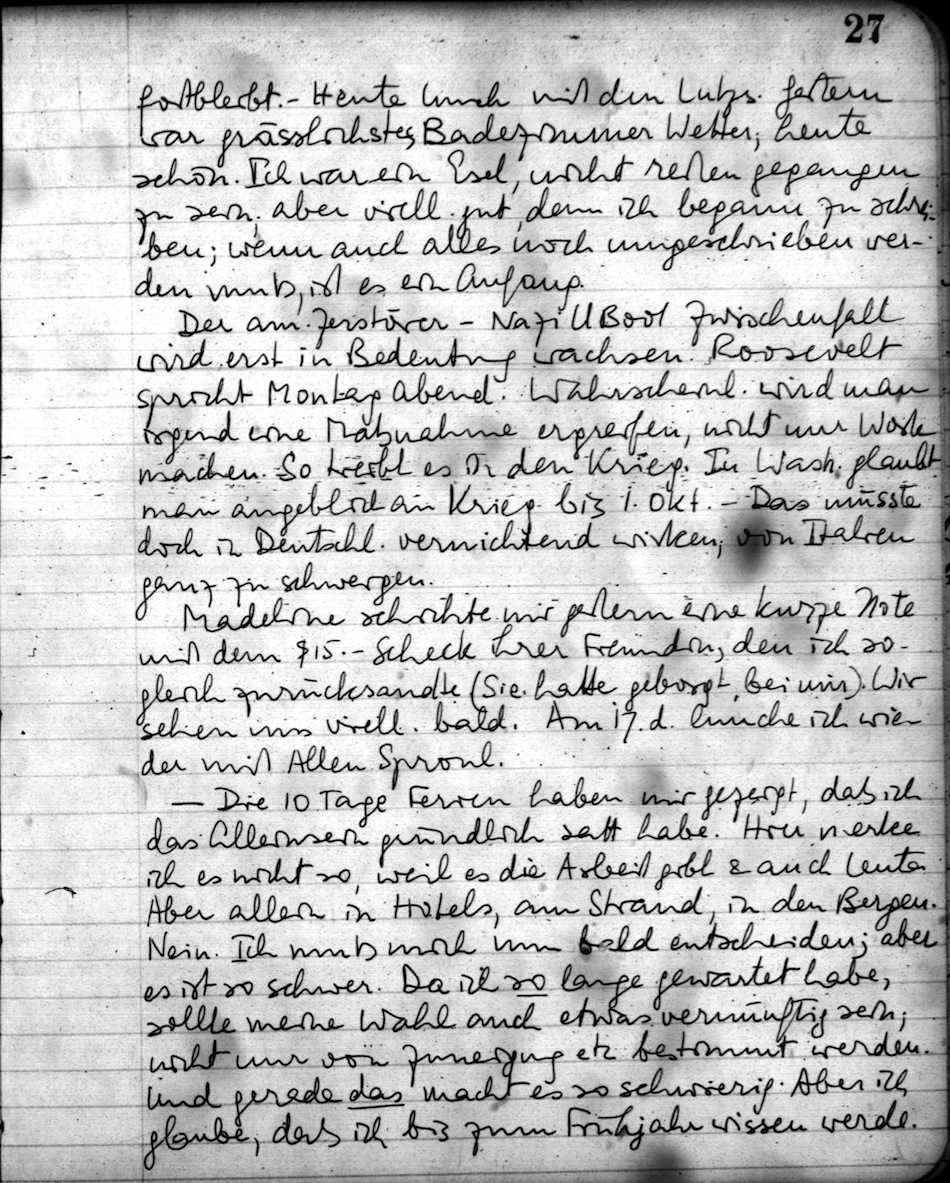 27
fortbleibt. - Heute lunch mit den Lutzs. Gestern
war grässlichstes Badezimmer Wetter; heute
schön. Ich war ein Esel, nicht reiten gegangen
zu sein; aber viell. gut, denn ich begann zu schrei-
ben; wenn auch alles noch umgeschrieben wer-
den muß, ist es ein Anfang.
Der am. Zerstörer - Nazi UBoot Zwischenfall
wird erst in Bedeutung wachsen. Roosevelt
spricht Montag Abend. Wahrscheinl. wird man
irgend eine Maßnahme ergreifen, nicht nur Worte
machen. So treibt es in den Krieg. In Wash. glaubt
man angeblich an Krieg bis 1. Okt. - Das müsste
doch in Deutschl. vernichtend wirken; von Italien
ganz zu schweigen.
Madeline schickte mir gestern eine kurze Note
mit dem $15.- Scheck ihrer Freundin, den ich so-
gleich zurücksandte (Sie hatte geborgt bei mir). Wir
sehen uns viell. bald. Am 17. d. lunche ich wie
der mit Allen Sproul.
— Die 10 Tage Ferien haben mir gezeigt, daß ich
das Alleinsein gründlich satt habe. Hier merke
ich es nicht so, weil es die Arbeit gibt & auch Leute.
Aber allein in Hotels, am Strand, in den Bergen.
Nein. Ich muß mich nun bald entscheiden; aber
es ist so schwer. Da ich so lange gewartet habe,
sollte meine Wahl auch etwas vernünftig sein;
nicht nur von Zuneigung etc bestimmt werden.
Und gerade das macht es so schwierig. Aber ich
glaube, daß ich bis zum Frühjahr wissen werde.